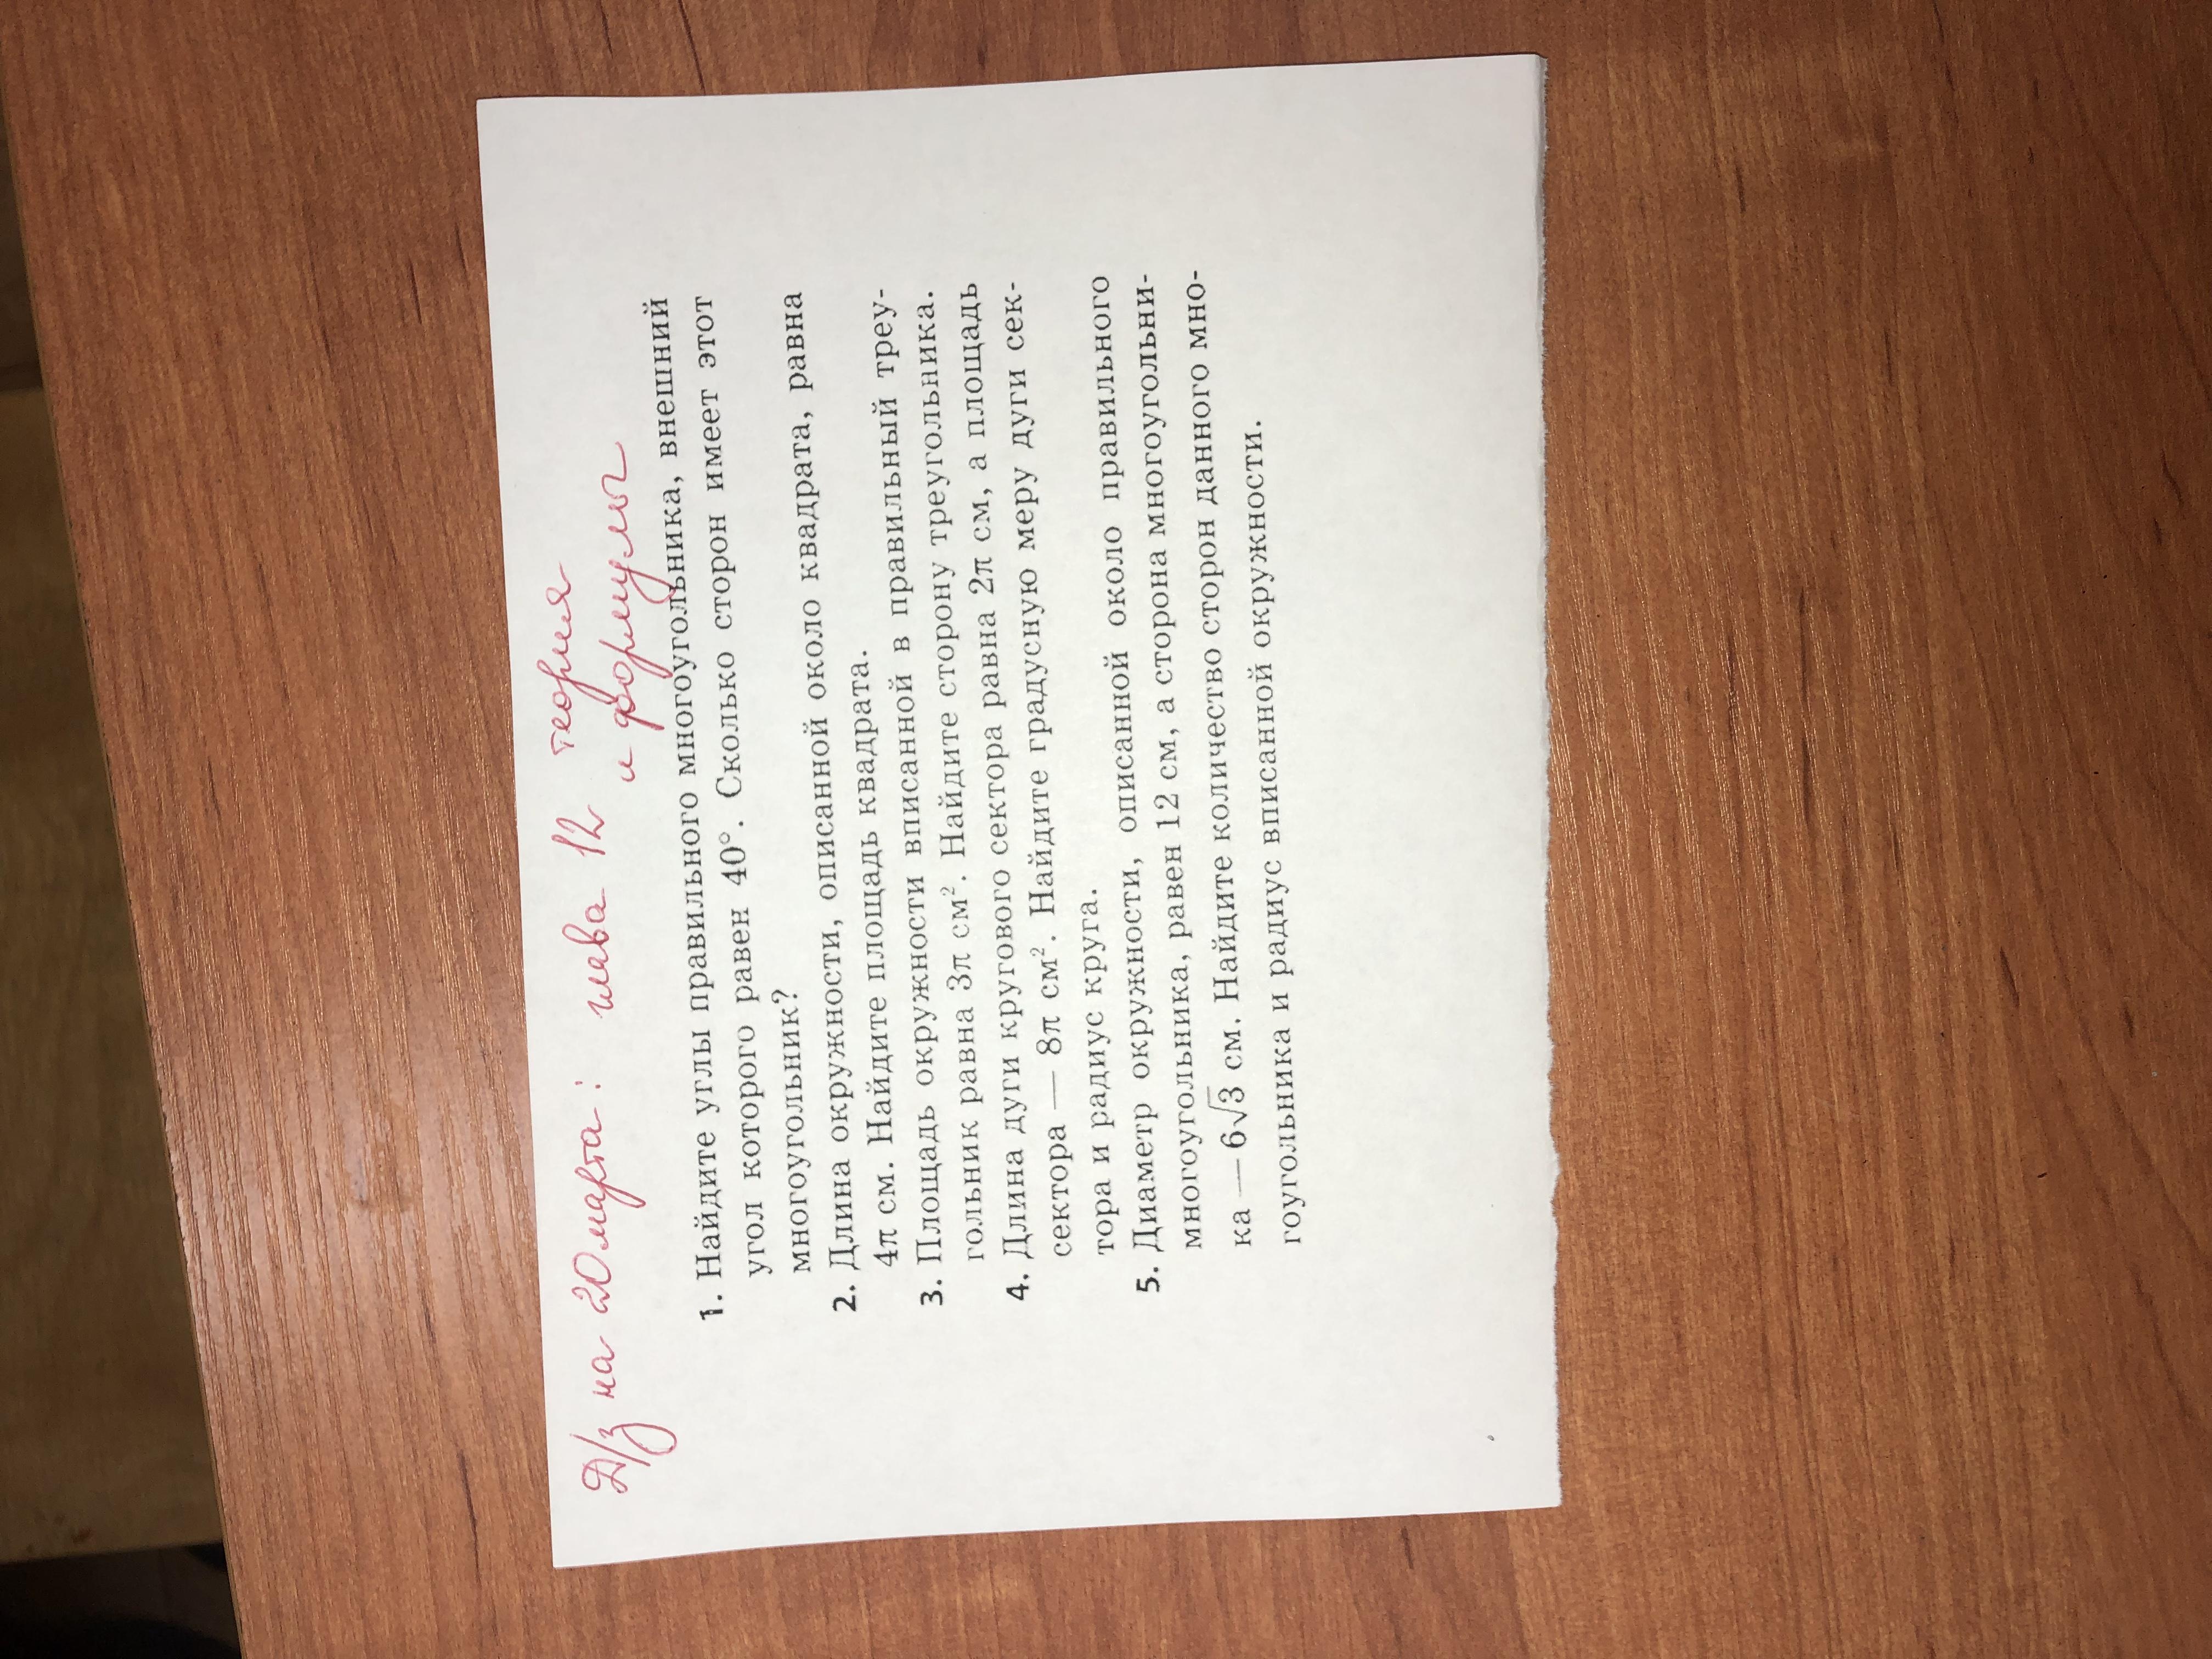 Д/з на 20 марта: глава 12 теория
и формулы
1. Найдите углы правильного многоугольника, внешний
угол которого равен 40°. Сколько сторон имеет этот
многоугольник?
2. Длина окружности, описанной около квадрата, равна
4π см. Найдите площадь квадрата.
3. Площадь окружности вписанной в правильный треу-
гольник равна 3π см². Найдите сторону треугольника.
4. Длина дуги кругового сектора равна 2π см, а площадь
сектора — 8π см². Найдите градусную меру дуги сек-
тора и радиус круга.
5. Диаметр окружности, описанной около правильного
многоугольника, равен 12 см, а сторона многоугольни-
ка — 6√3 см. Найдите количество сторон данного мно-
гоугольника и радиус вписанной окружности.